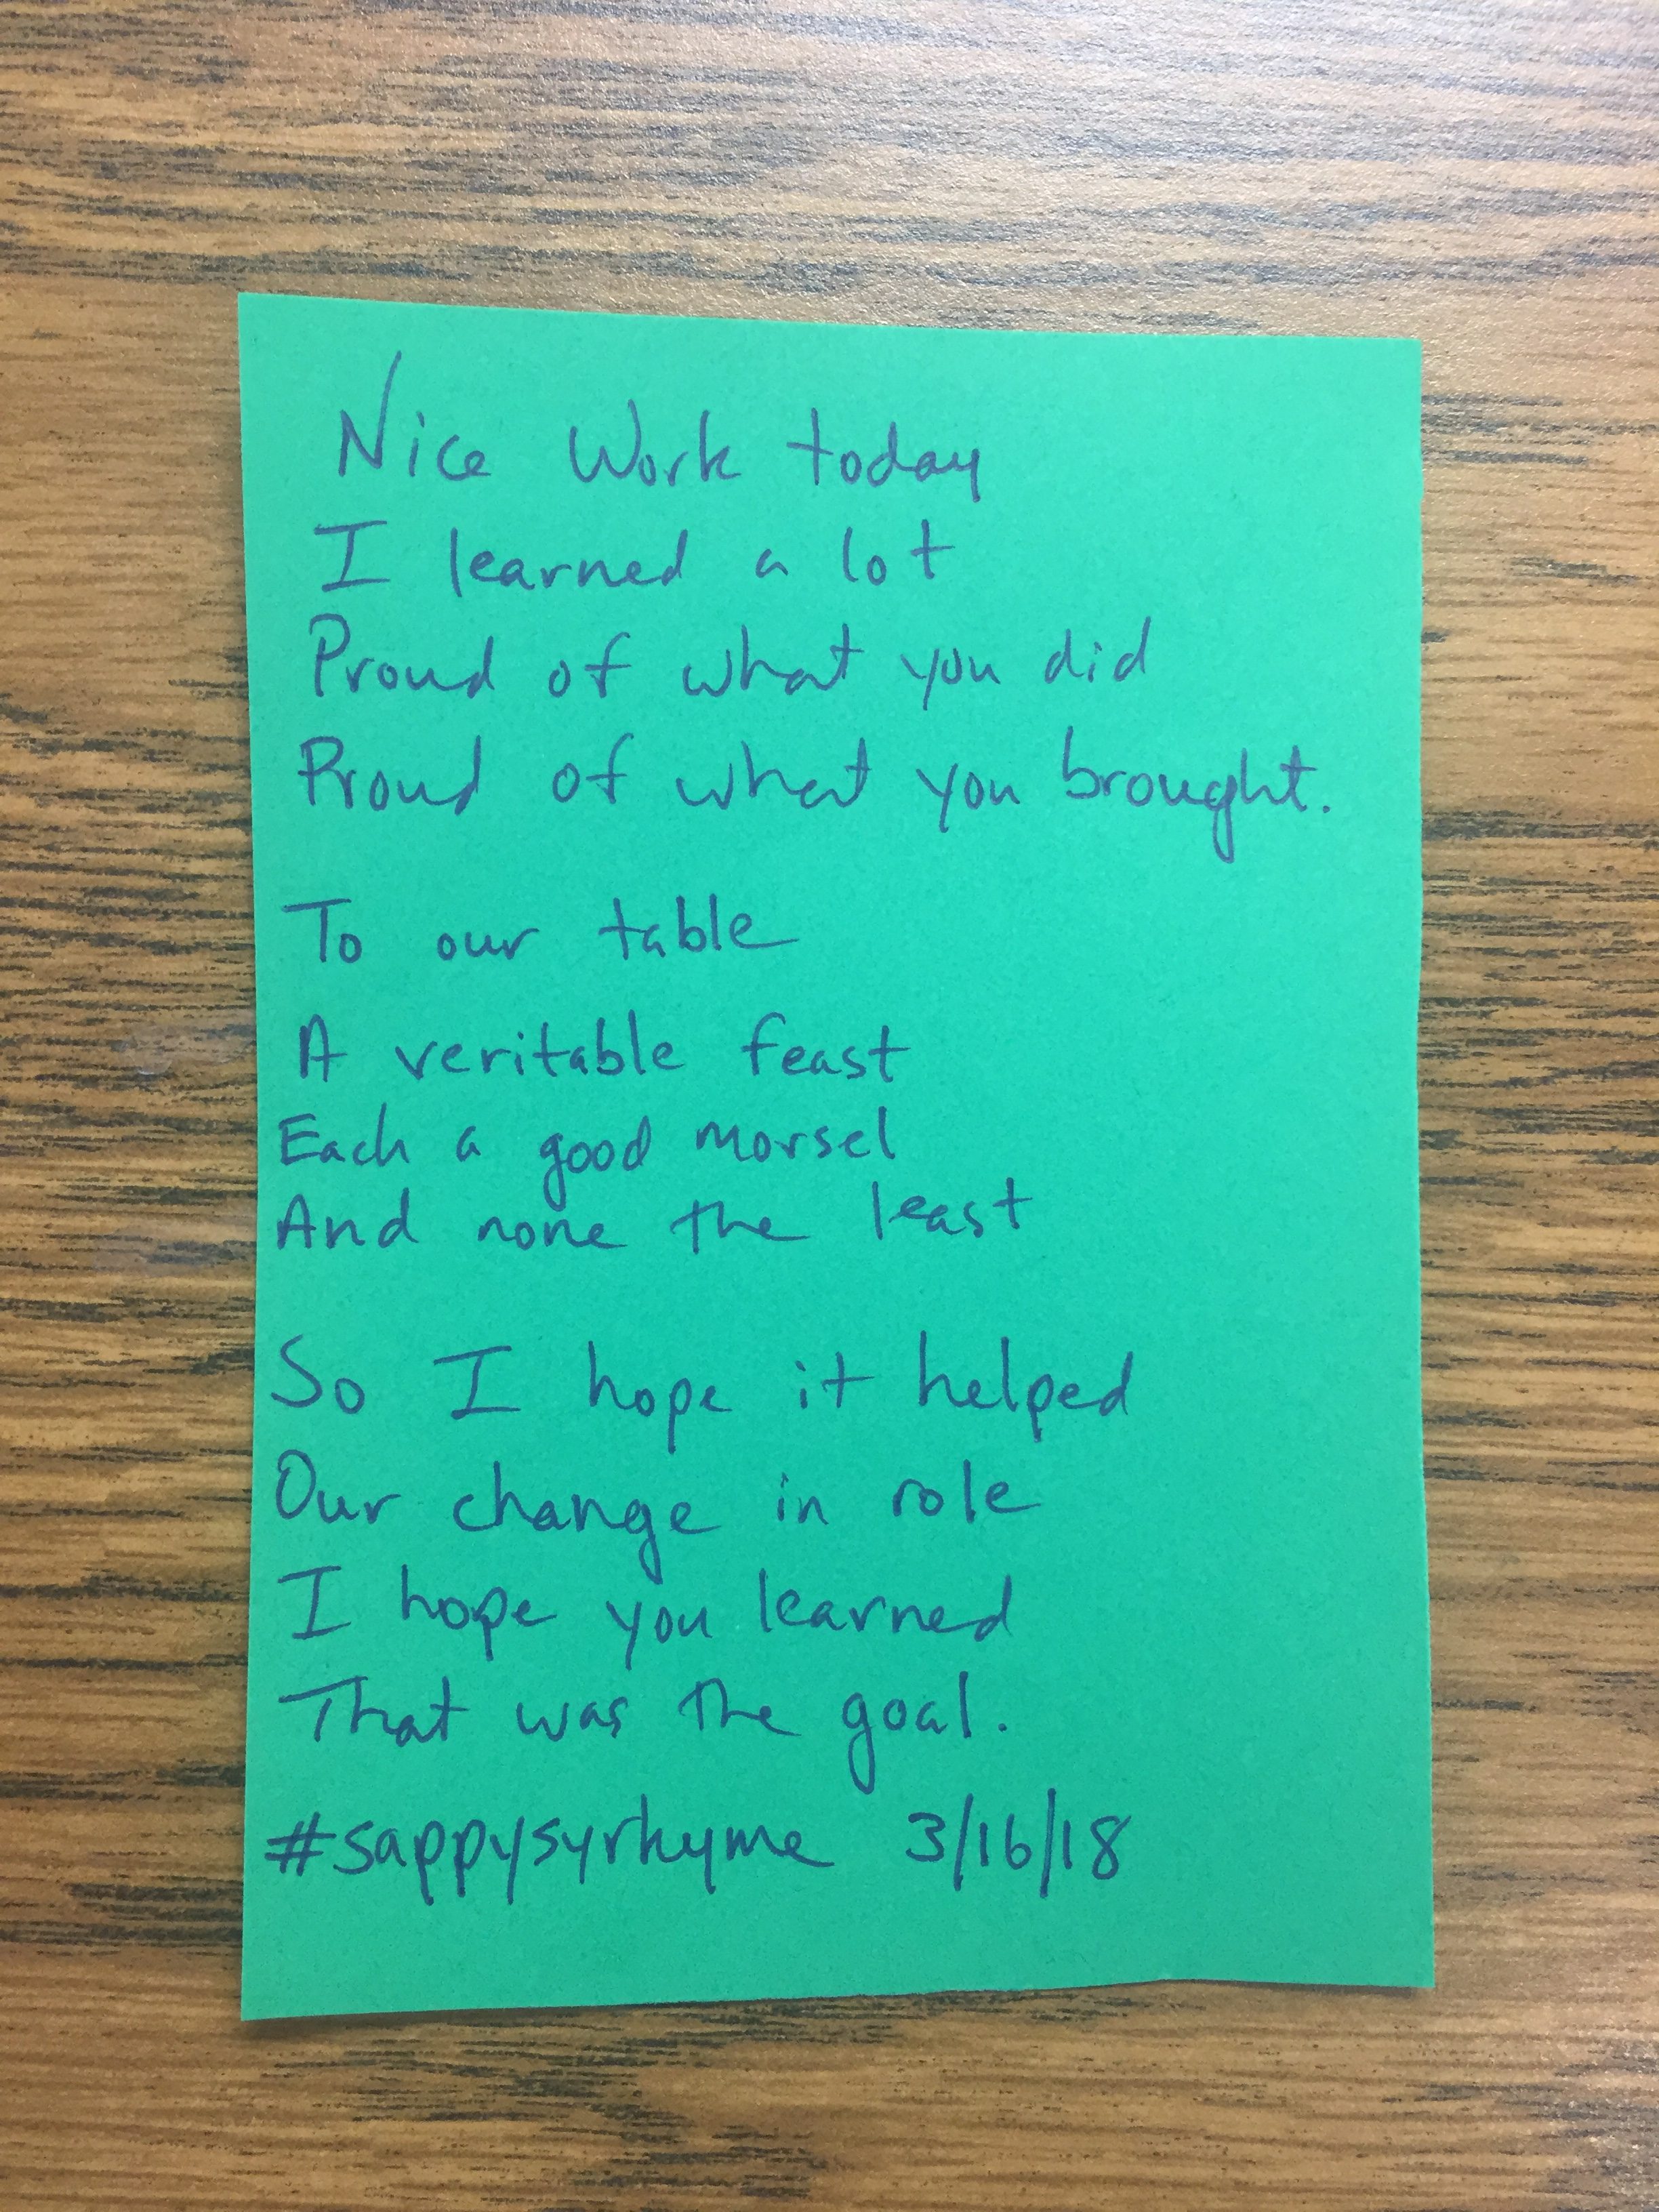 Nice Work today
I learned a lot
Proud of what you did
Proud of what you brought.
To our table
A veritable feast
Each a good morsel
And none the least
So I hope it helped
Our change in role
I hope you learned
That was the goal.
#sappysyrhyme 3/16/18